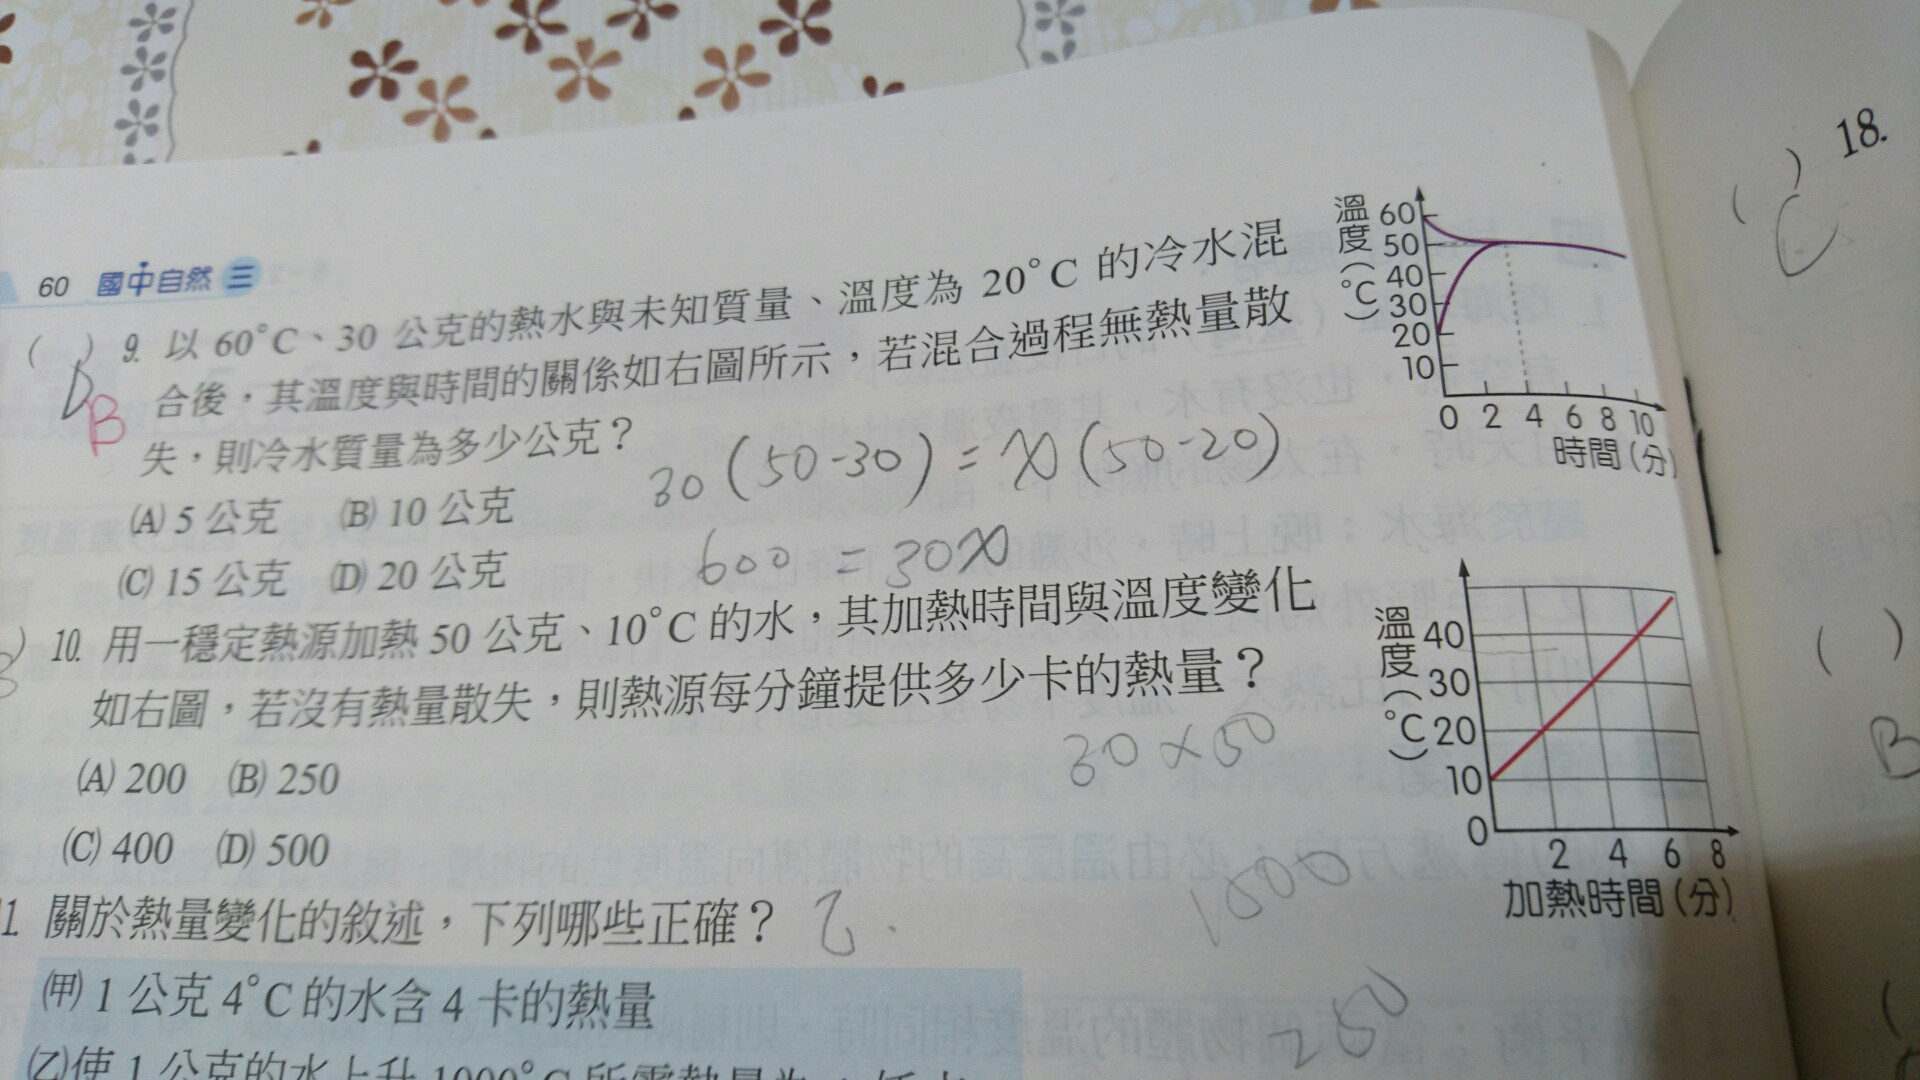 18.
60 國中自然 三
( ) 9. 以 60°C、30 公克的熱水與未知質量、溫度為 20°C 的冷水混
合後，其溫度與時間的關係如右圖所示，若混合過程無熱量散
失，則冷水質量為多少公克？
D
B
30(50-30)=x(50-20)
600 = 30x
(A) 5 公克 (B) 10 公克
(C) 15 公克 (D) 20 公克
溫度(°C)
60
50
40
30
20
10
0 2 4 6 8 10
時間(分)
) 10. 用一穩定熱源加熱 50 公克、10°C 的水，其加熱時間與溫度變化
如右圖，若沒有熱量散失，則熱源每分鐘提供多少卡的熱量？
30×50
(A) 200 (B) 250
(C) 400 (D) 500
溫度(°C)
40
30
20
10
0
2 4 6 8
加熱時間(分)
1500
250
1. 關於熱量變化的敘述，下列哪些正確？ 乙.
(甲) 1 公克 4°C 的水含 4 卡的熱量
(乙)使 1 公克的水上升 1000°C 所需熱量為
( )
C
( )
B